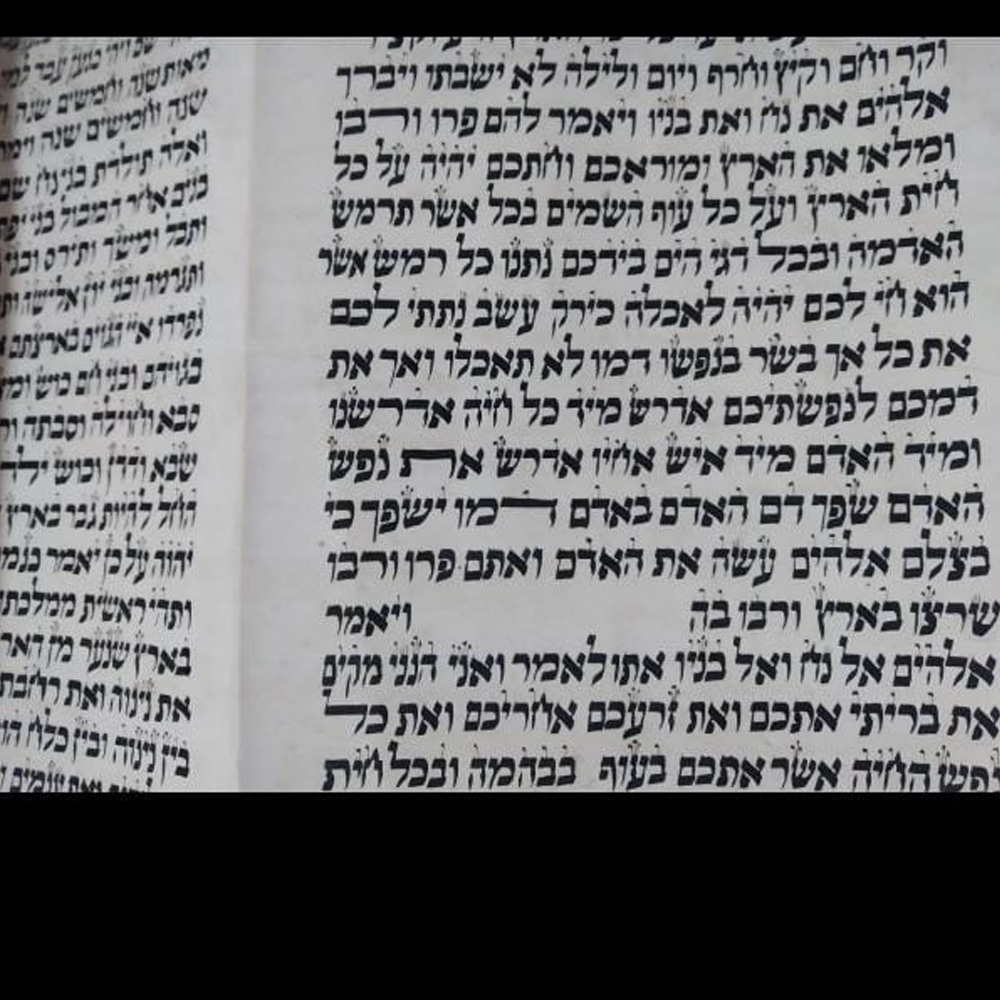 וקר וחם וקיץ וחרף ויום ולילה לא ישבתו ויברך
אלהים את נח ואת בניו ויאמר להם פרו ורבו
ומלאו את הארץ ומוראכם וחתכם יהיה על כל
חית הארץ ועל כל עוף השמים בכל אשר תרמש
האדמה ובכל דגי הים בידכם נתנו כל רמש אשר
הוא חי לכם יהיה לאכלה כירק עשב נתתי לכם
את כל אך בשר בנפשו דמו לא תאכלו ואך את
דמכם לנפשתיכם אדרש מיד כל חיה אדרשנו
ומיד האדם מיד איש אחיו אדרש את נפש
האדם שפך דם האדם באדם דמו ישפך כי
בצלם אלהים עשה את האדם ואתם פרו ורבו
שרצו בארץ ורבו בה ויאמר
אלהים אל נח ואל בניו אתו לאמר ואני הנני מקים
את בריתי אתכם ואת זרעכם אחריכם ואת כל
נפש החיה אשר אתכם בעוף בבהמה ובכל חית
מאות שנה וחמשים שנה
שנה וחמשים שנה וימת
ואלה תולדת בני נח שם
בנים אחר המבול בני יפת
ותבל ומשך ותירס ובני
ותגרמה ובני יון אלישה
נפרדו איי הגוים בארצתם
בגויהם ובני חם כוש
סבא וחוילה וסבתה
שבא ודדן וכוש ילד
החל להיות גבר בארץ
יהוה על כן יאמר כנמרד
ותהי ראשית ממלכתו
בארץ שנער מן הארץ
את נינוה ואת רחבת
בין נינוה ובין כלח הוא